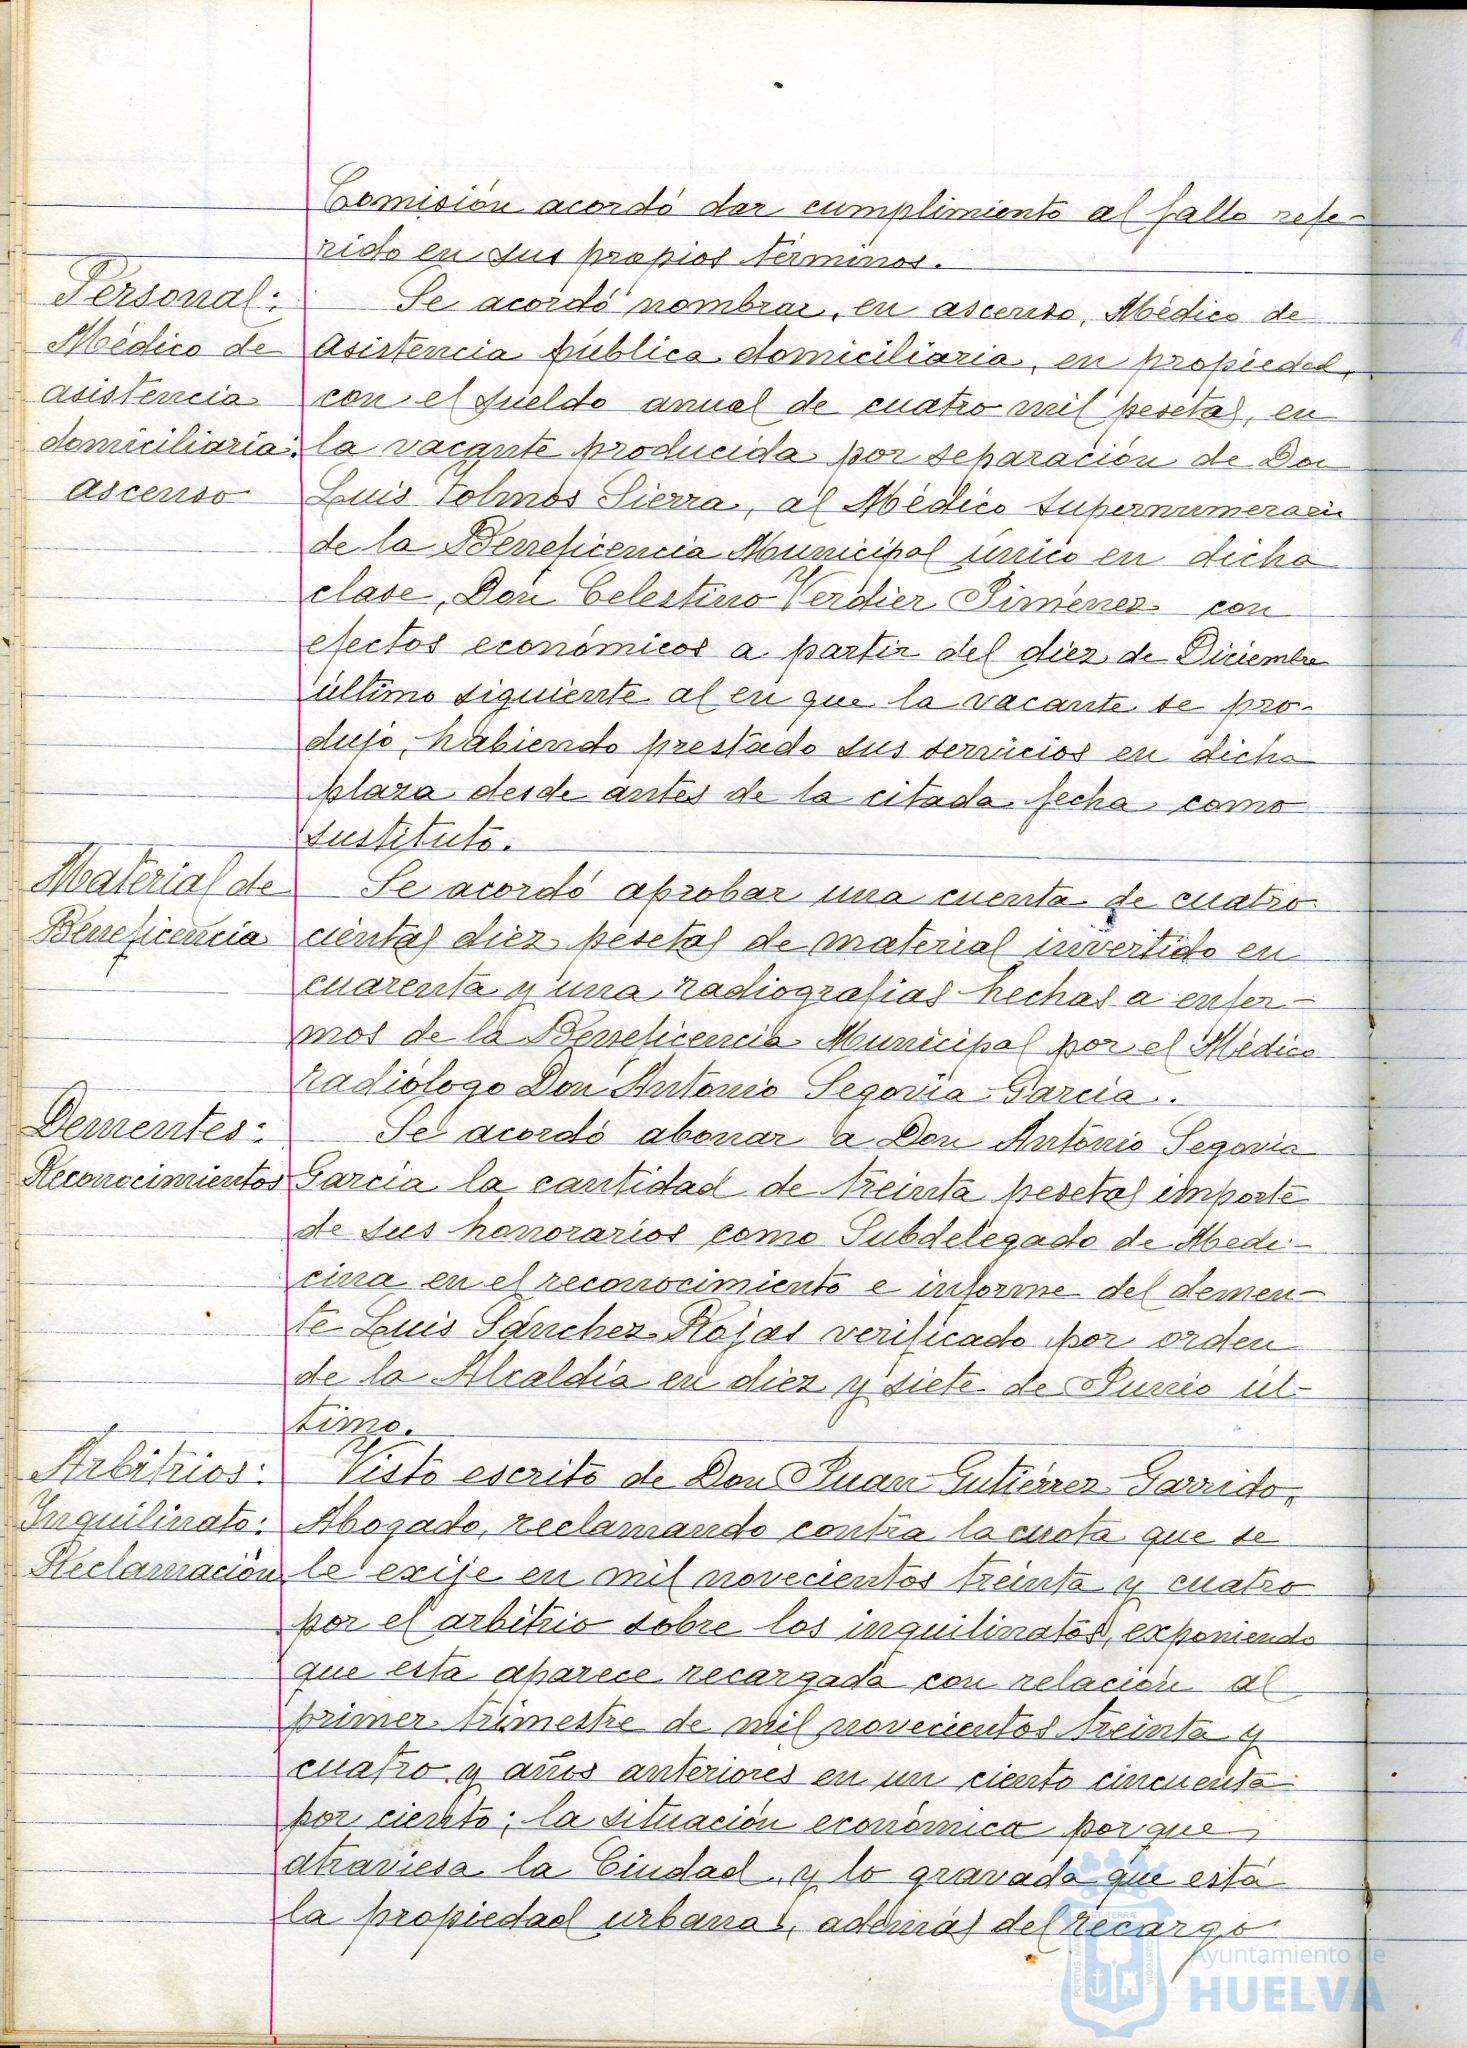 Comisión acordó dar cumplimiento al fallo refe-
rido en sus propios términos.
Personal:
Médico de
asistencia
domiciliaria:
ascenso
Se acordó nombrar, en ascenso, Médico de
asistencia pública domiciliaria, en propiedad,
con el sueldo anual de cuatro mil pesetas, en
la vacante producida por separación de Don
Luis Tolmos Sierra, al Médico supernumerario
de la Beneficencia Municipal único en dicha
clase, Don Celestino Verdier Jiménez con
efectos económicos a partir del diez de Diciembre
último siguiente al en que la vacante se pro-
dujo, habiendo prestado sus servicios en dicha
plaza desde antes de la citada fecha como
sustituto.
Material de
Beneficencia
Se acordó aprobar una cuenta de cuatro
cientas diez pesetas de material invertido en
cuarenta y una radiografias hechas a enfer-
mos de la Beneficencia Municipal por el Médico
radiólogo Don Antonio Segovia García.
Dementes:
Reconocimientos
Se acordó abonar a Don Antonio Segovia
García la cantidad de treinta pesetas importe
de sus honorarios como Subdelegado de Medi-
cina en el reconocimiento e informe del demen-
te Luis Sánchez Rojas verificado por orden
de la Alcaldía en diez y siete de Junio úl-
timo.
Arbitrios:
Inquilinato:
Reclamación
Visto escrito de Don Juan Gutiérrez Garrido,
Abogado, reclamando contra la cuota que se
le exije en mil novecientos treinta y cuatro
por el arbitrio sobre los inquilinatos, exponiendo
que esta aparece recargada con relación al
primer trimestre de mil novecientos treinta y
cuatro y años anteriores en un ciento cincuenta
por ciento; la situación económica porque
atraviesa la Ciudad, y lo gravada que está
la propiedad urbana, además del recargo
Ayuntamiento de
HUELVA